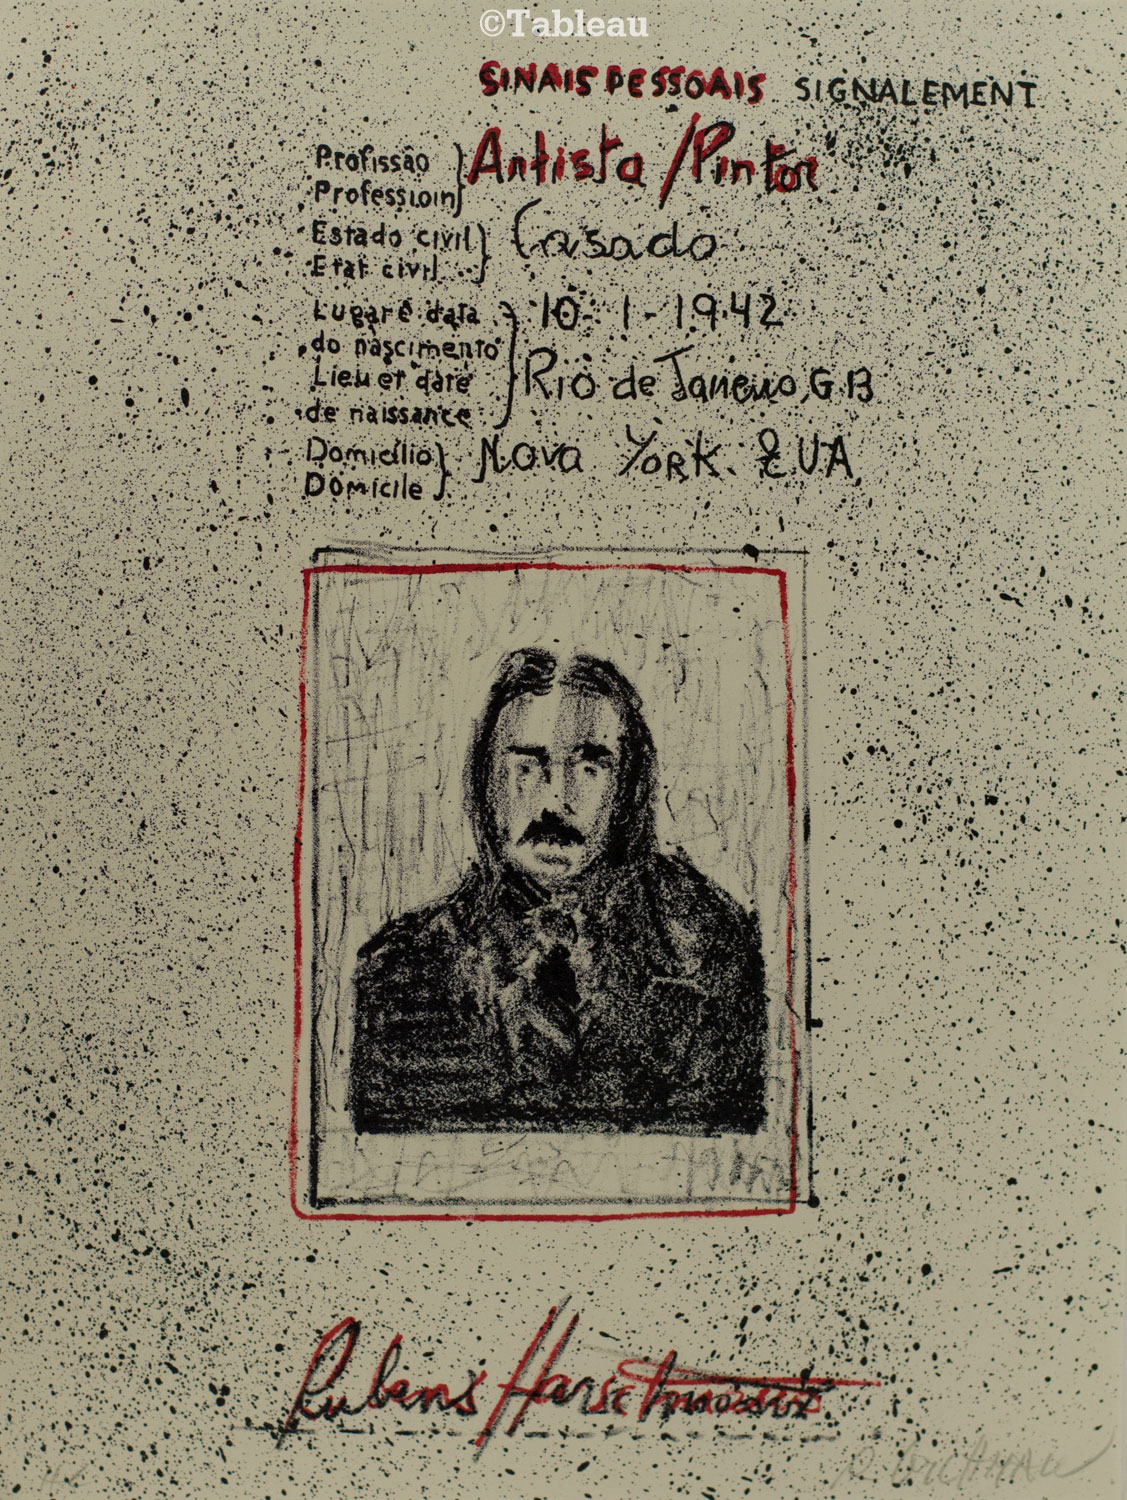 ©Tableau
SINAIS PESSOAIS SIGNALEMENT
Profissão } Artista/Pintor
Professioin
Estado civil } Casado
Etat civil
Lugar e data } 10-1-1942
do nascimento
Lieu et date Rio de Janeiro, G B
de naissance
Domicílio } Nova York. EUA
Domicile
Rubens